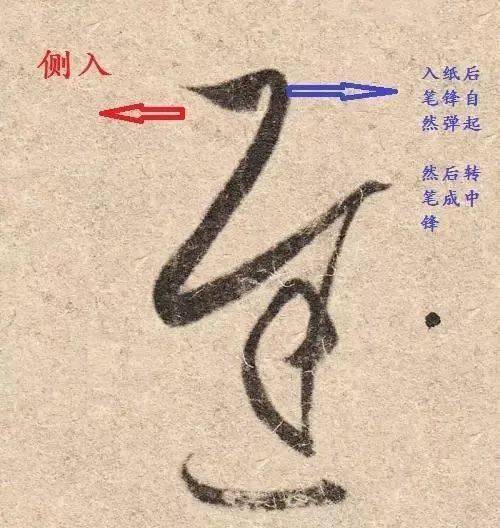 侧入
入纸后
笔锋自
然弹起
然后转
笔成中
锋